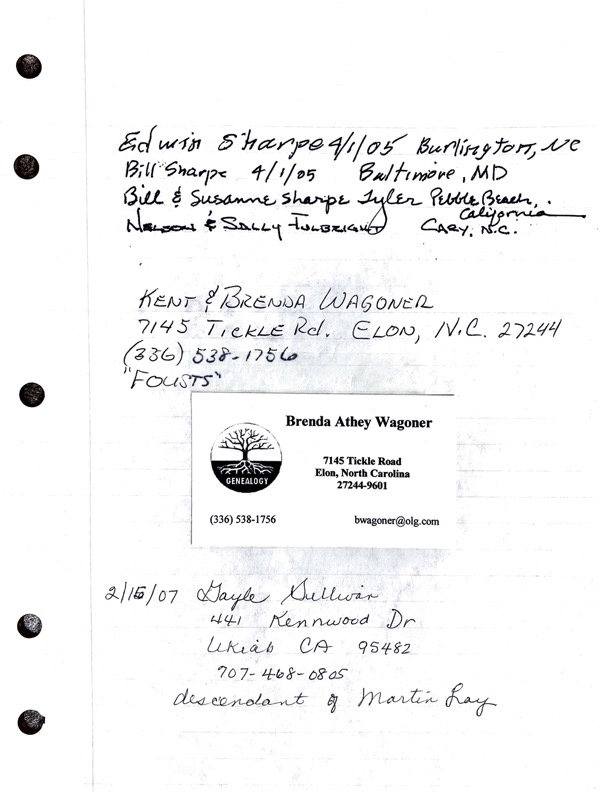 Edwin Sharpe 4/1/05 Burlington, NC
Bill Sharpe 4/1/05 Baltimore, MD
Bill & Susanne Sharpe Tyler Pebble Beach, California
Nelson & Sally Fulbright Cary, N.C.
Kent & Brenda Wagoner
7145 Tickle Rd. Elon, N.C. 27244
(336) 538-1756
"Fousts"
Brenda Athey Wagoner
7145 Tickle Road
Elon, North Carolina
27244-9601
GENEALOGY
(336) 538-1756 bwagoner@olg.com
2/15/07 Gayle Sullivan
441 Kennwood Dr
Ukiah CA 95482
707-468-0805
descendant of Martin Lay